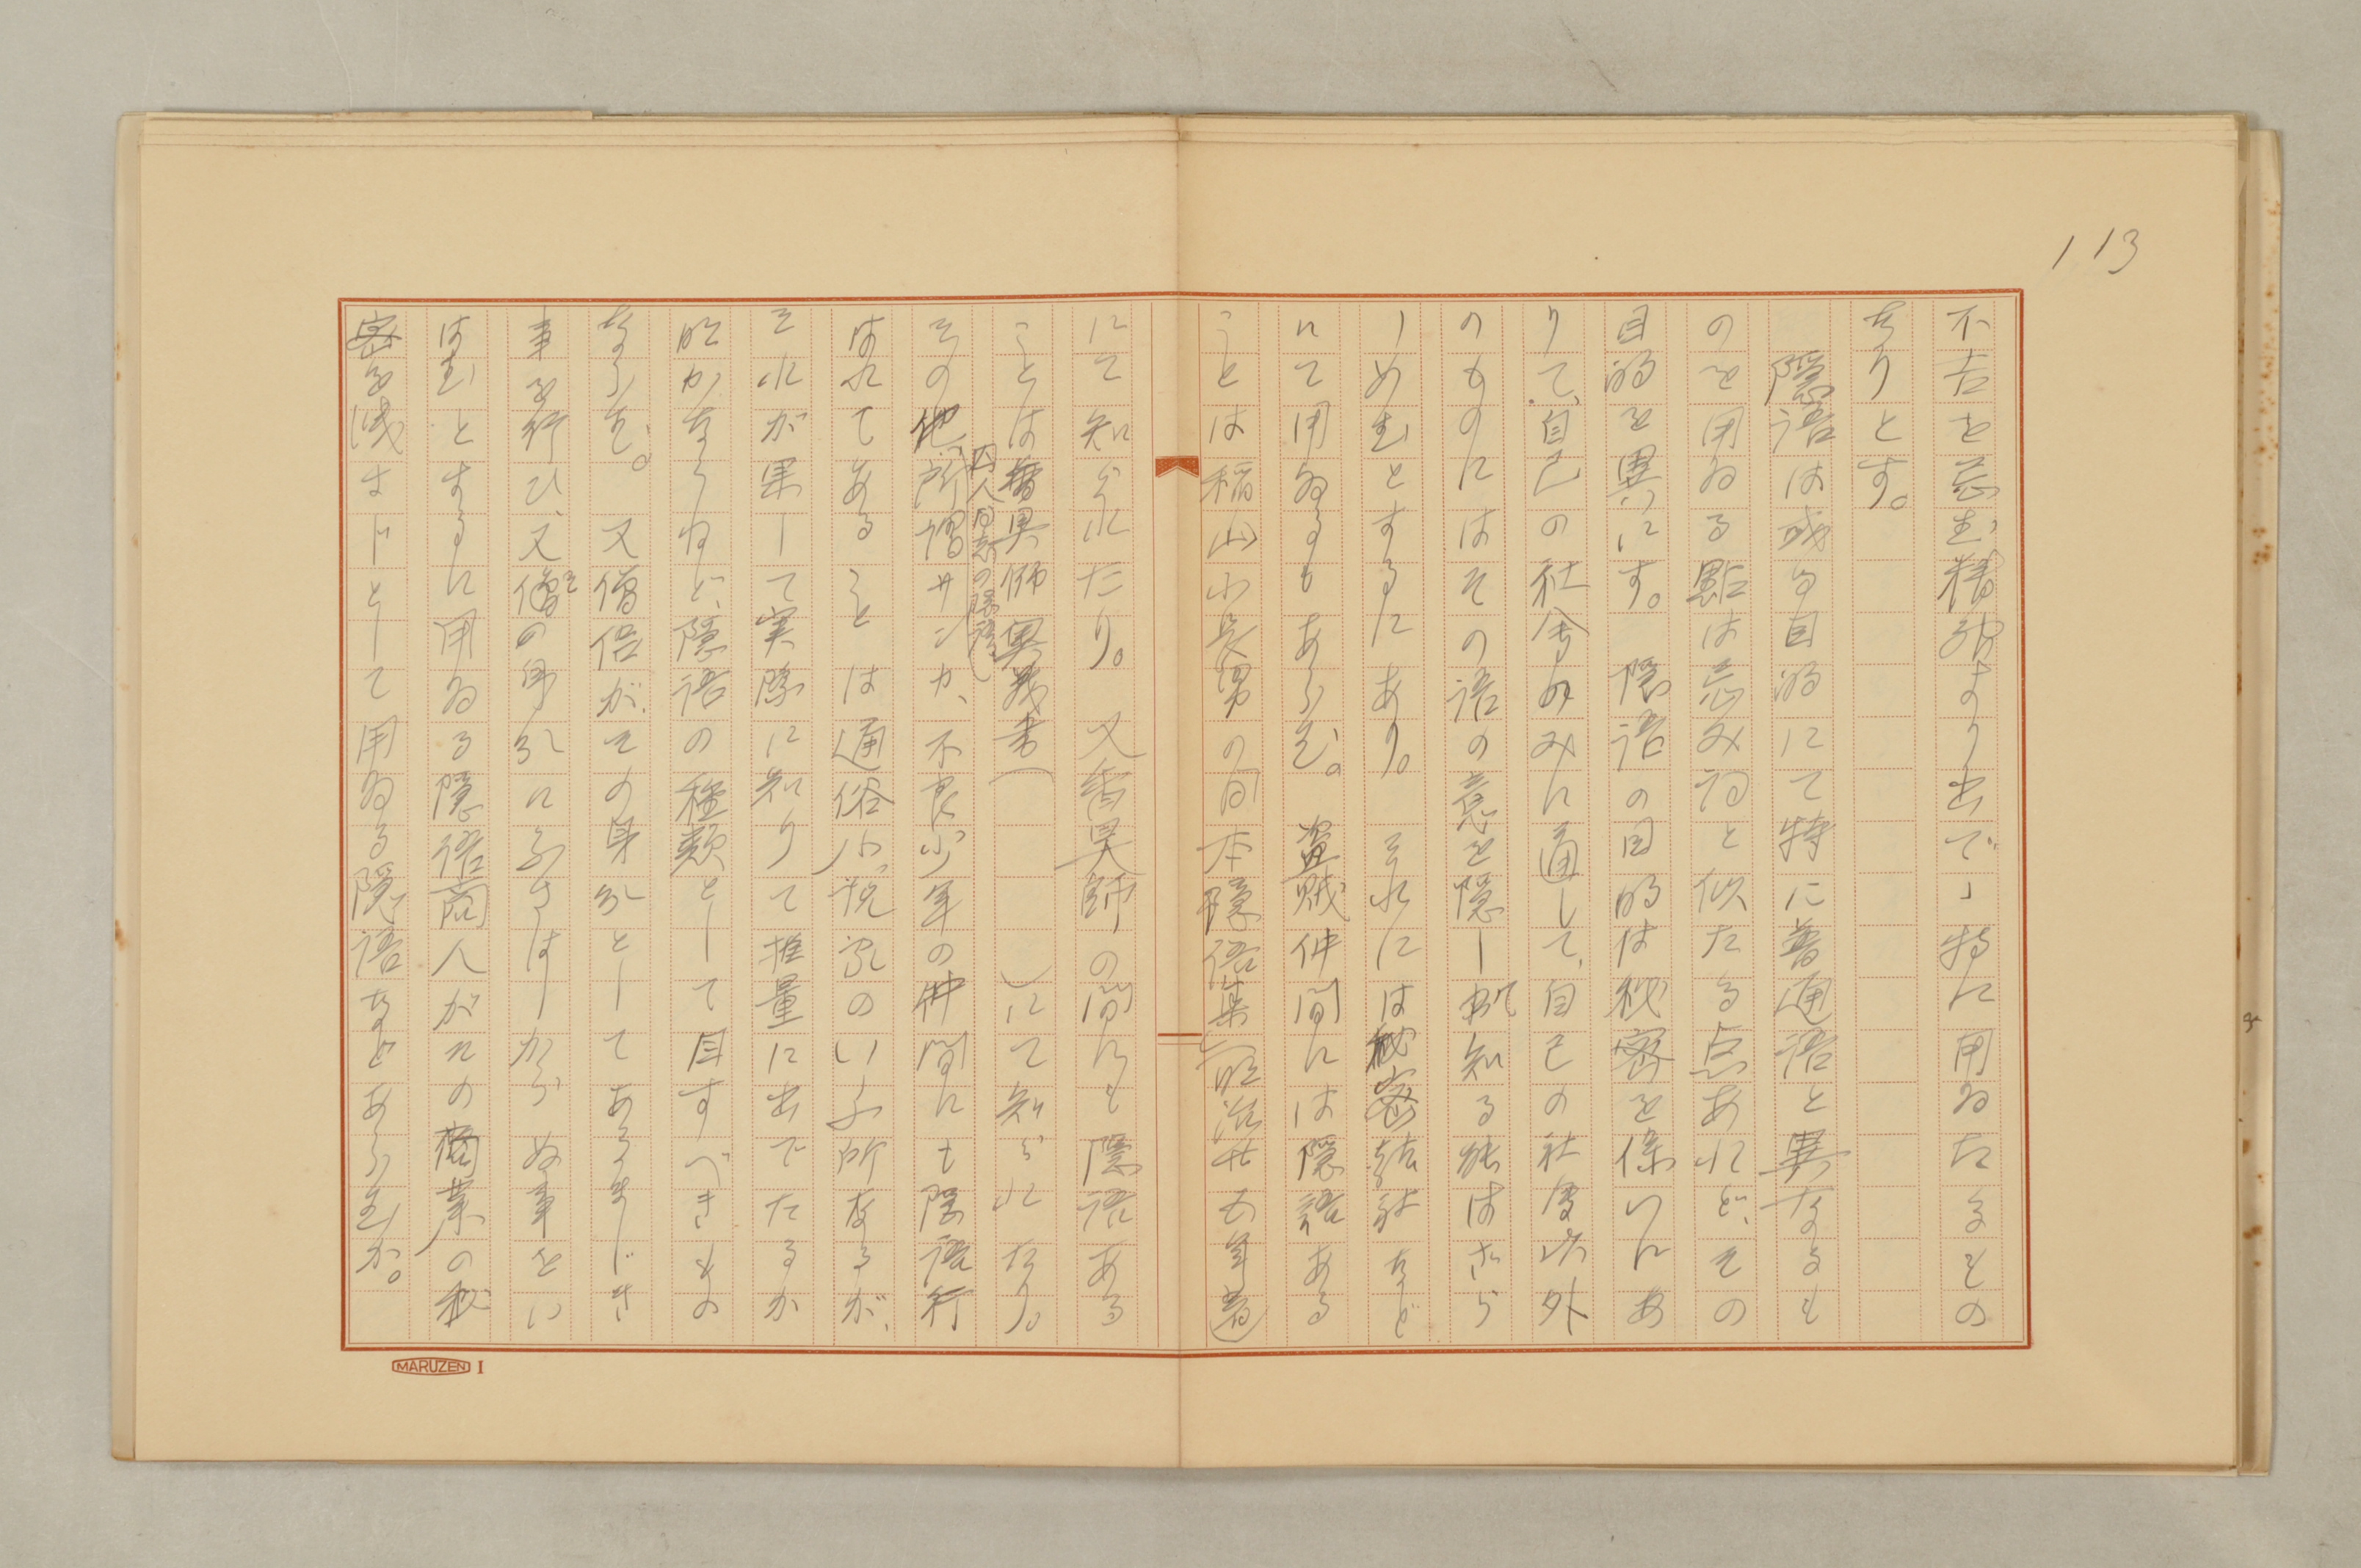 113
不吉を忌む精神より出で、特に用ゐたるもの
なりとす。
隠語は或る目的にて特に普通語と異なるも
のを用ゐる點は忌み詞と似たる点あれど、その
目的を異にす。隠語の目的は秘密を保つにあ
りて、自己の社会のみに通して、自己の社会以外
のものにはその語の意を隠し知る能はざら
しめむとするにあり。それには秘密結社など
にて用ゐるもあらむ。盗賊仲間には隠語ある
ことは稲山小長男の日本隠語集(明治廿五年著)
にて知られたり。又香具師の間にも隠語ある
ことは香具師奥義書( )にて知られたり。
その他、所謂サンカ、不良少年の仲間にも隠語行
囚人同志の隠語
はれてあることは通俗小説家のいふ所なるが、
それが果して実際に知りて推量に出でたるか
明かならねど、隠語の種類として目すべきもの
ならむ。又僧侶が、その身分としてあるまじき
事を行ひ、又僧の身分にふさはしからぬ事をい
はむとするに用ゐる隠語商人がその商業の秘
密を洩さじとして用ゐる隠語などあらむか。
MARUZEN I